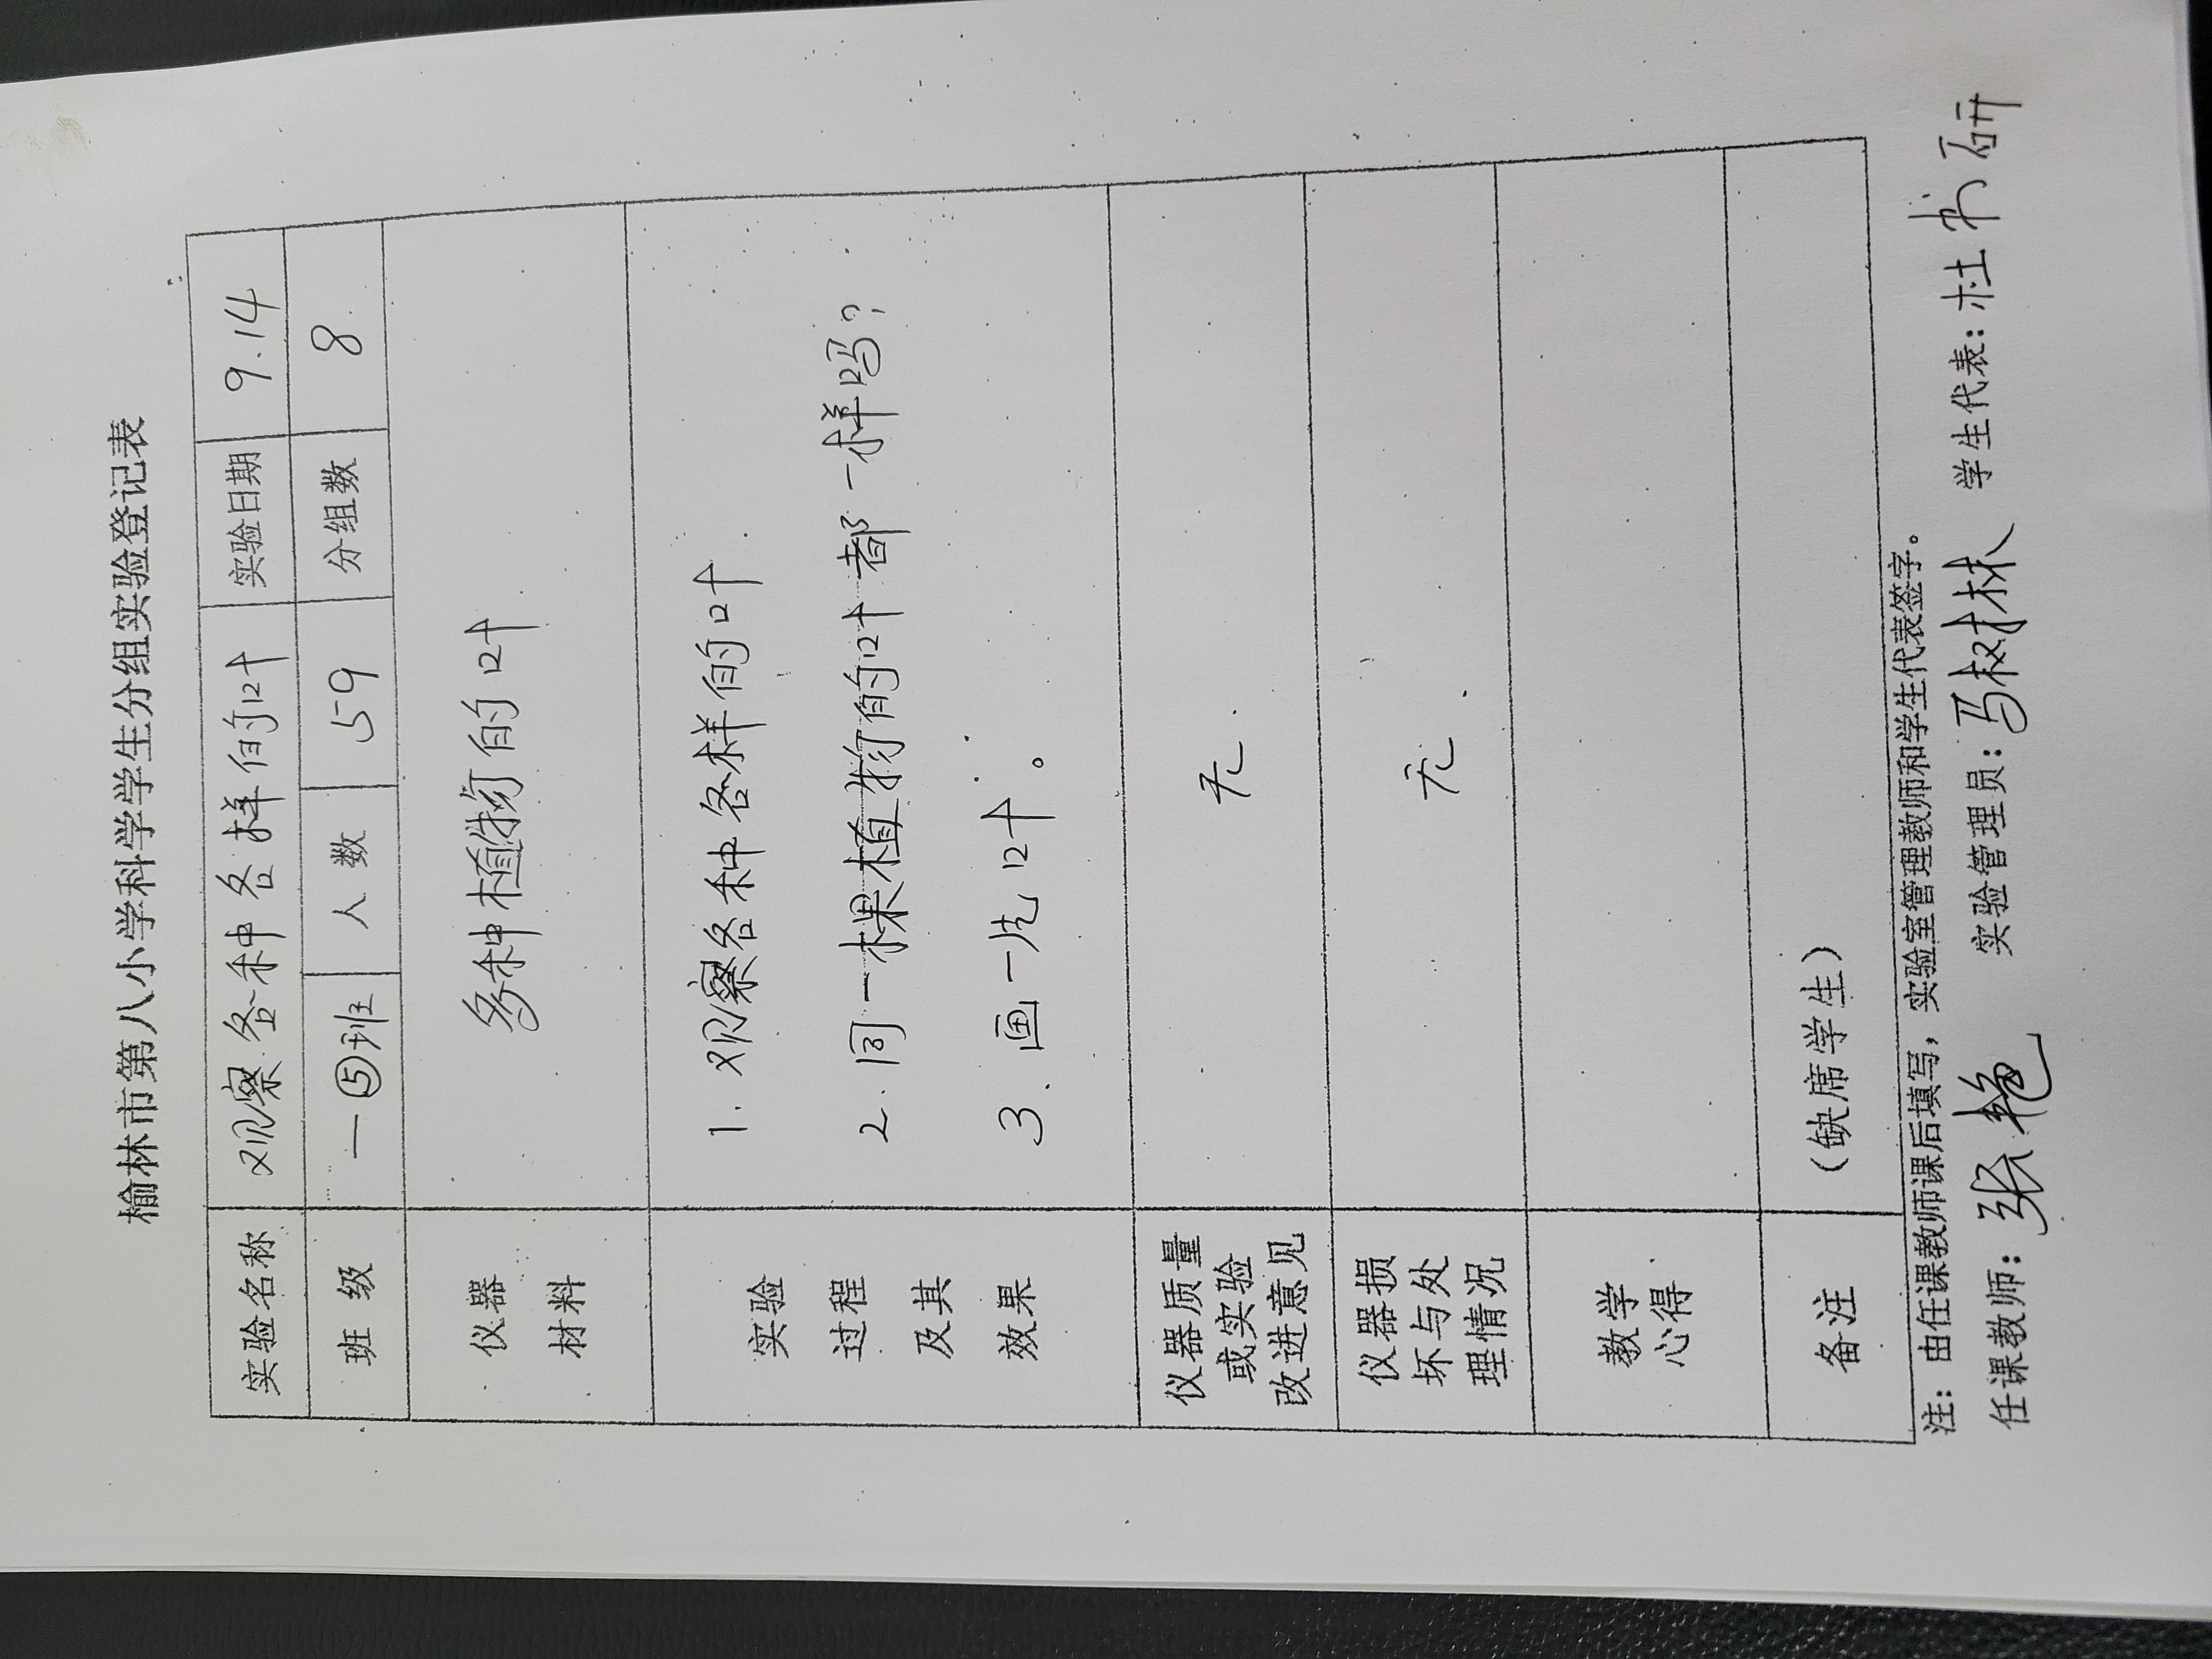 榆林市第八小学科学学生分组实验登记表
实验名称 观察各种各样的叶 实验日期 9.14
班 级 一⑤班 人 数 59 分组数 8
仪器
材料
多种植物的叶
实验
过程
及其
效果
1. 观察各种各样的叶
2. 同一棵植物的叶都一样吗?
3. 画一片叶。
仪器质量
或实验
改进意见
无.
仪器损
坏与处
理情况
无.
教学
心得
备注 (缺席学生)
注:由任课教师课后填写,实验室管理教师和学生代表签字。
任课教师:张艳 实验管理员:马树林 学生代表:杜书研